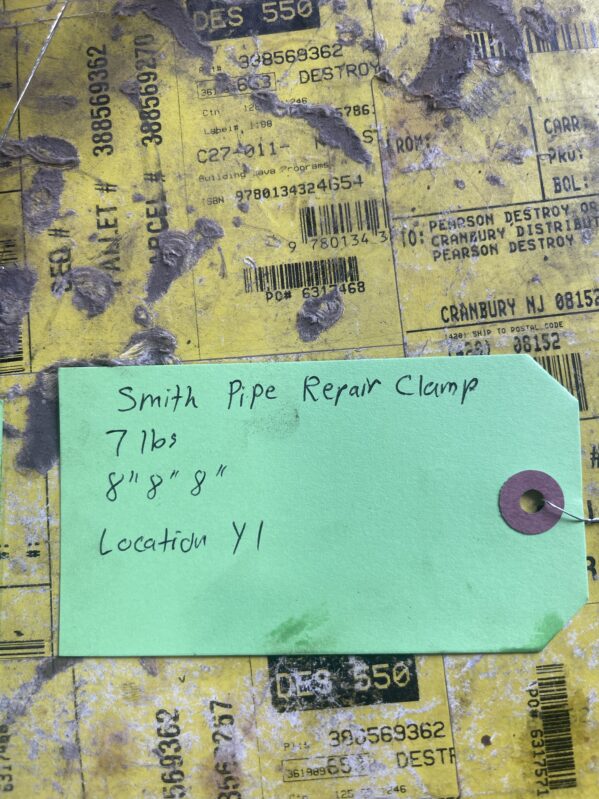 DES 550
388569362
DESTROY
Ctn
Label#, 1:98
C27-011-
Building Java Programs
ISBN 9780134324654
9 780134 3
PO# 6317468
SEQ #
PALLET # 388569362
PARCEL # 388569270
FROM:
CARR
PRO:
BOL:
TO: PEARSON DESTROY OR
CRANBURY DISTRIBUT
PEARSON DESTROY
CRANBURY NJ 08152
(420) SHIP TO POSTAL CODE
(420) 08152
Smith Pipe Repair Clamp
7 lbs
8" 8" 8"
Location Y1
DES 550
388569362
DEST
PO# 6317571